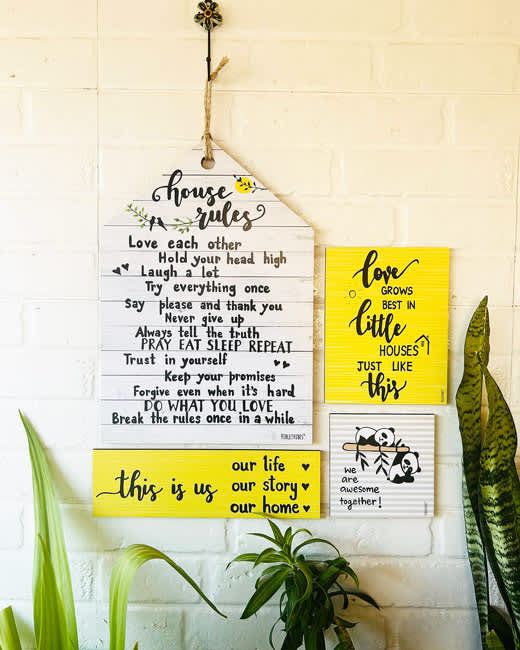 house
rules
Love each other
Hold your head high
Laugh a lot
Try everything once
Say please and thank you
Never give up
Always tell the truth
PRAY EAT SLEEP REPEAT
Trust in yourself
Keep your promises
Forgive even when it's hard
DO WHAT YOU LOVE
Break the rules once in a while
love
GROWS
BEST IN
little
HOUSES
JUST LIKE
this
we
are
awesome
together!
this is us
our life
our story
our home